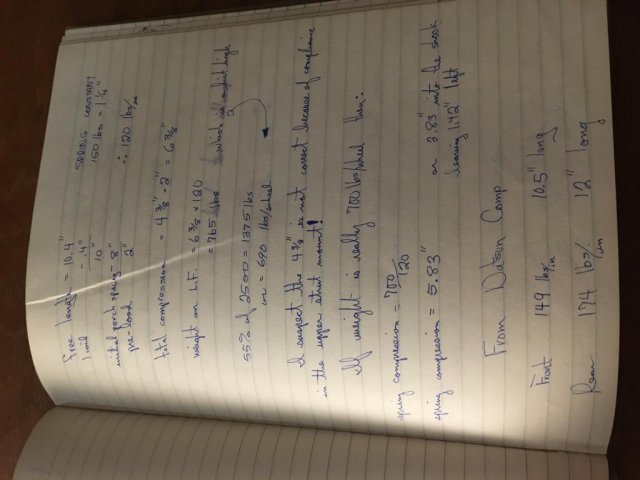 Free length = 10.4"
SPRING CONSTANT
- .4"
150 lbs = 1 1/4"
10"
initial perch spacing - 8"
pre-load 2"
∴ 120 lbs/in
total compression = 4 3/8 + 2" = 6 3/8"
weight on L.F. = 6 3/8 x 120
= 765 lbs which is a bit high
55% of 2500 = 1375 lbs
or = 690 lbs/wheel
I suspect the 4 3/8 is not correct because of compliance
in the upper strut mount!
If weight is really 700 lbs/wheel then:
spring compression = 700/120
spring compression = 5.83"
or 3.83" into the shock
leaving 1.42" left
From Datsun Comp
Front 149 lbs/in 10.5" long
Rear 174 lbs/in 12" long